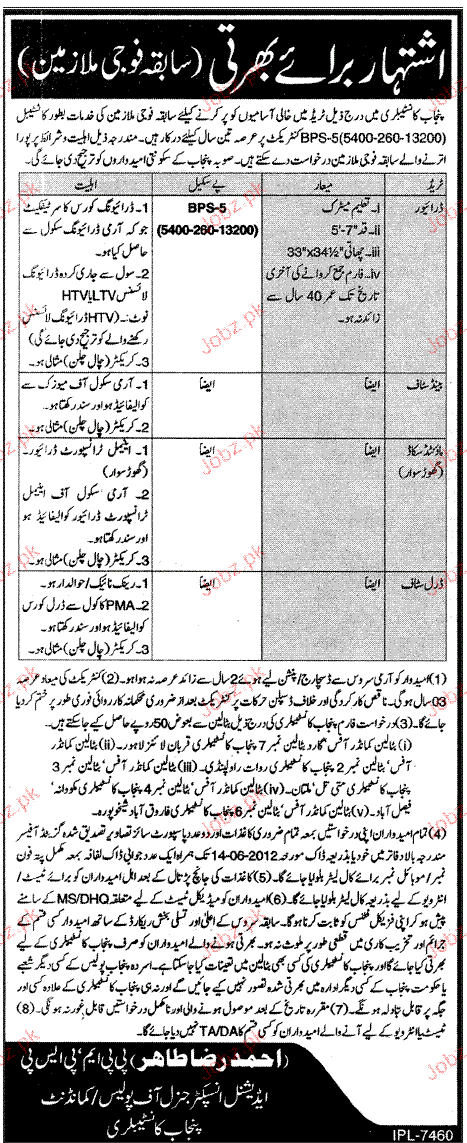 اشتہار برائے بھرتی (سابقہ فوجی ملازمین)
پنجاب کانسٹیبلری میں درج ذیل ٹریڈ میں خالی آسامیوں کو پُر کرنے کیلئے سابقہ فوجی ملازمین کی خدمات بطور کانسٹیبل
BPS-5(5400-260-13200) کنٹریکٹ پر عرصہ تین سال کیلئے درکار ہیں۔ مندرجہ ذیل اہلیت و شرائط پر پورا
اترنے والے سابقہ فوجی ملازمین درخواست دے سکتے ہیں۔ صوبہ پنجاب کے سکونتی امیدواروں کو ترجیح دی جائے گی۔
ٹریڈ معیار پے سکیل اہلیت
ڈرائیور
i۔ تعلیم میٹرک
ii۔ قد 5'-7"
iii۔ چھاتی 33"x34½"
iv۔ فارم جمع کروانے کی آخری
تاریخ تک عمر 40 سال سے
زائد نہ ہو۔
BPS-5
(5400-260-13200)
1۔ ڈرائیونگ کورس کا سرٹیفکیٹ
جو کہ آرمی ڈرائیونگ سکول سے
حاصل کیا ہو۔
2۔ سول سے جاری کردہ ڈرائیونگ
لائسنس LTV یا HTV
نوٹ:۔ (HTV ڈرائیونگ لائسنس
رکھنے والے کو ترجیح دی جائے گی)
3۔ کریکٹر (چال چلن) مثالی ہو۔
بینڈ سٹاف ایضاً ایضاً
1۔ آرمی سکول آف میوزک سے
کوالیفائیڈ ہو اور سند رکھتا ہو۔
2۔ کریکٹر (چال چلن) مثالی ہو۔
ماؤنٹڈ سکاڈ ایضاً ایضاً
(گھوڑ سوار)
1۔ اینیمل ٹرانسپورٹ ڈرائیور۔
(گھوڑ سوار)
2۔ آرمی سکول آف اینیمل
ٹرانسپورٹ ڈرائیور کوالیفائیڈ ہو
اور سند رکھتا ہو۔
3۔ کریکٹر (چال چلن) مثالی ہو۔
ڈرل سٹاف ایضاً ایضاً
1۔ رینک نائیک/حوالدار ہو۔
2۔ PMA کاکول سے ڈرل کورس
کوالیفائیڈ ہو اور سند رکھتا ہو۔
3۔ کریکٹر (چال چلن) مثالی ہو۔
(1) امیدوار کو آرمی سروس سے ڈسچارج/پنشن لیے ہوئے 2 سال سے زائد عرصہ نہ ہوا ہو۔ (2) کنٹریکٹ کی میعاد عرصہ
03 سال ہوگی۔ ناقص کارکردگی اور خلاف ڈسپلن حرکات پر کنٹریکٹ بعد از ضروری محکمانہ کارروائی فوری طور پر ختم کر دیا
جائے گا۔ (3) درخواست فارم پنجاب کانسٹیبلری کی درج ذیل بٹالین سے بعوض 50 روپے حاصل کیے جا سکتے ہیں۔
(i) بٹالین کمانڈر آفس گارڈ بٹالین نمبر 7 پنجاب کانسٹیبلری قربان لائنز لاہور۔ (ii) بٹالین کمانڈر
آفس‘ بٹالین نمبر 2 پنجاب کانسٹیبلری روات راولپنڈی۔ (iii) بٹالین کمانڈر آفس‘ بٹالین نمبر 3
پنجاب کانسٹیبلری متی تل‘ ملتان۔ (iv) بٹالین کمانڈر آفس‘ بٹالین نمبر 4 پنجاب کانسٹیبلری مکوآنہ‘
فیصل آباد۔ (v) بٹالین کمانڈر آفس‘ بٹالین نمبر 6 پنجاب کانسٹیبلری فاروق آباد شیخوپورہ۔
(4) تمام امیدواران اپنی درخواستیں بمعہ تمام ضروری کاغذات اور دو عدد پاسپورٹ سائز تصاویر تصدیق شدہ گزیٹڈ آفیسر
مندرجہ بالا دفاتر میں خود یا بذریعہ ڈاک مورخہ 14-06-2012 تک ہمراہ ایک عدد جوابی ڈاک لفافہ بمعہ مکمل پتہ فون
نمبر/موبائل نمبر برائے کال لیٹر بلوایا جائے گا۔ (5) کاغذات کی جانچ پڑتال کے بعد اہل امیدواران کو برائے ٹیسٹ/
انٹرویو کے لیے بذریعہ کال لیٹر بلوایا جائے گا۔ (6) امیدواران کو میڈیکل ٹیسٹ کے لیے متعلقہ MS/DHQ کے سامنے
پیش ہو کر اپنی فزیکل فٹنس کو ثابت کرنا ہوگا۔ سابقہ سروس کے اعلیٰ اور تسلی بخش ریکارڈ کے ساتھ امیدوار کسی قسم کے
جرائم اور تخریب کاری میں قطعی طور پر ملوث نہ ہو۔ بھرتی ہونے والے امیدواران کو صرف پنجاب کانسٹیبلری کے لیے
بھرتی کیا جائے گا اور پنجاب کانسٹیبلری کی کسی بھی بٹالین میں تعینات کیا جا سکتا ہے۔ افراد پنجاب پولیس کے کسی دیگر شعبے
یا حکومت پنجاب کے کسی دیگر ادارہ میں بھرتی شدہ تصور نہیں کیے جائیں گے اور نہ ہی پنجاب کانسٹیبلری کے علاوہ کسی اور
جگہ پر قابل تبادلہ ہونگے۔ (7) مقررہ تاریخ کے بعد موصول ہونے والی اور نامکمل درخواستیں قابل غور نہ ہونگی۔ (8)
ٹیسٹ یا انٹرویو کے لیے آنے والے امیدواران کو کسی قسم کا TA/DA نہیں دیا جائے گا۔
(احمد رضا طاہر) پی پی ایم‘ پی ایس پی
ایڈیشنل انسپکٹر جنرل آف پولیس/کمانڈنٹ
پنجاب کانسٹیبلری
IPL-7460
Jobz.pk